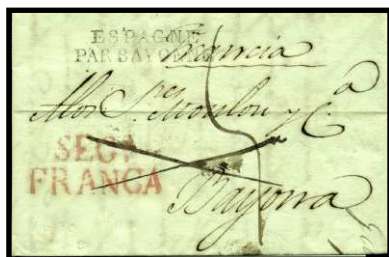 ESPAGNE
PAR BAYONNE
Francia
A los S.res Moulon y C.a
SEGA
FRANCA
Bayona